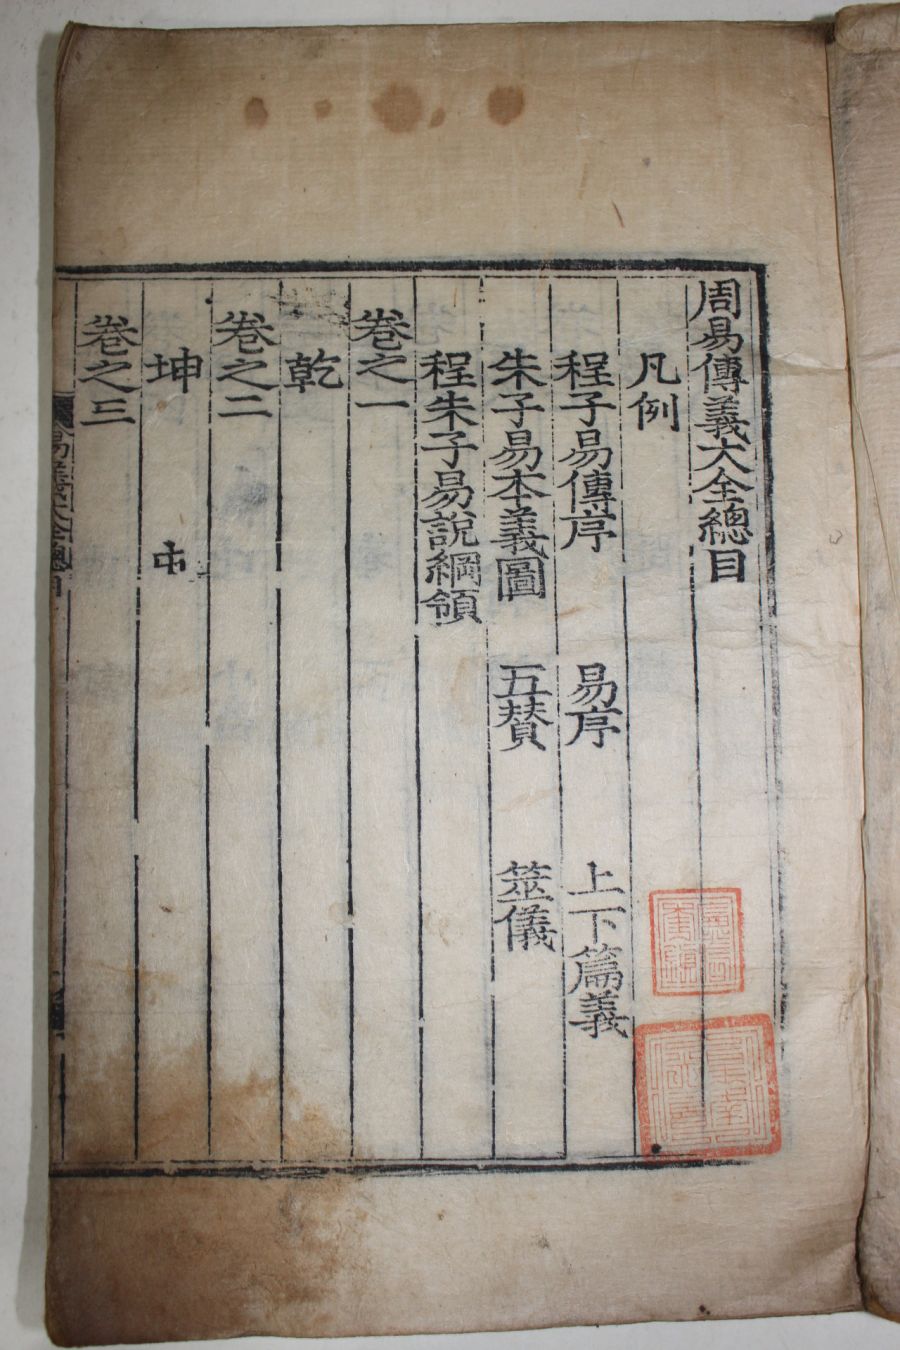 周易傳義大全總目
凡例
程子易傳序 易序 上下篇義
朱子易本義圖 五贊 筮儀
程朱子易說綱領
卷之一
乾
卷之二
坤
卷之三